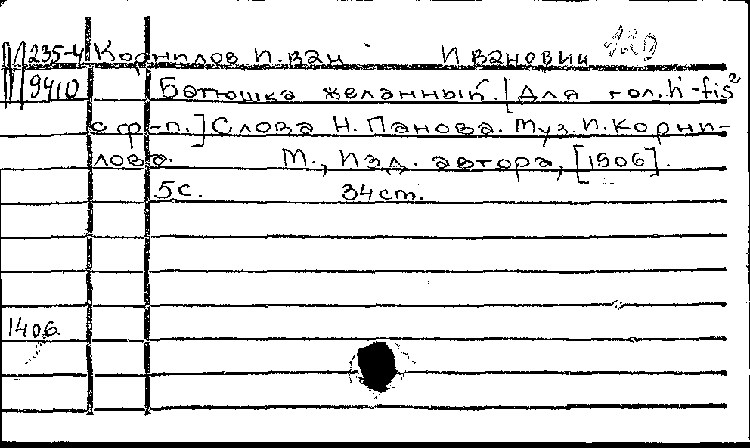 М 235-4 Корнилов Иван Иванович 120
9410 Батюшка желанный. [Для гол. h-fis²
с ф-п.] Слова Н. Панова. Муз. И. Корни-
лова. М., Изд. автора, [1906].
5 с. 34 см.
1406